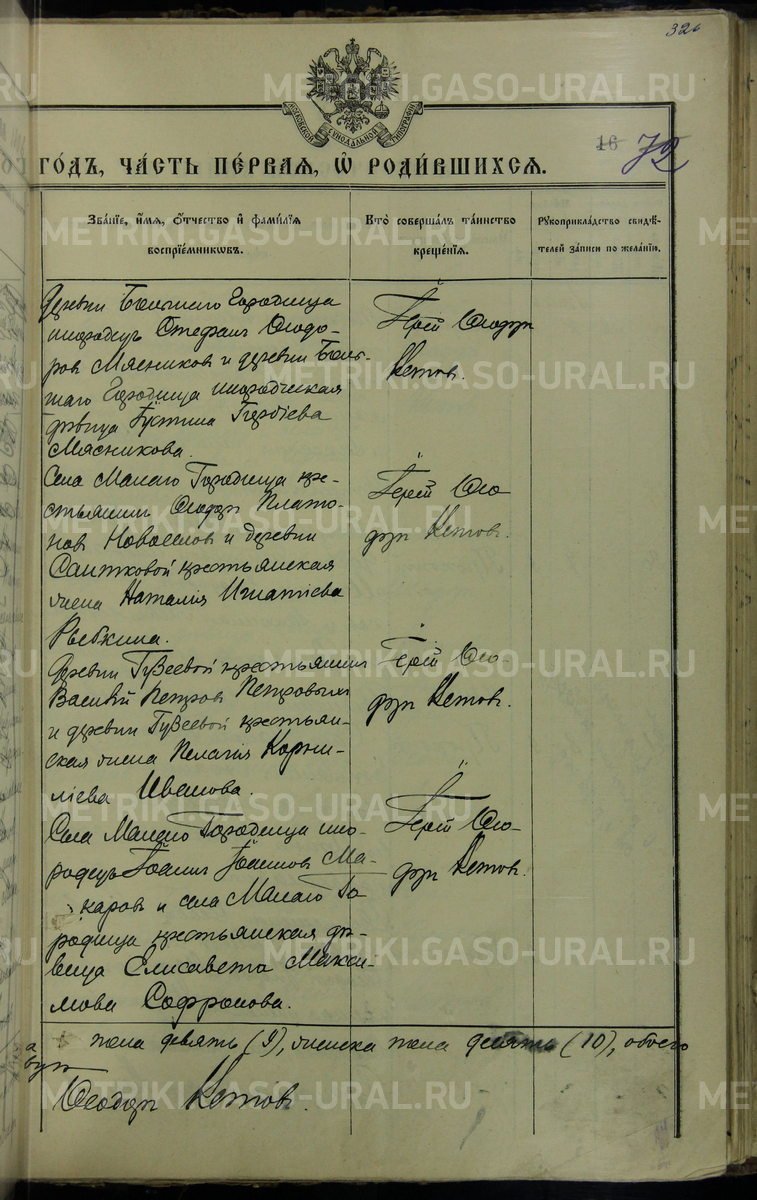 32б
МОСКОВСКОЙ СѴНОДАЛЬНОЙ ТИПОГРАФІИ
16 72
ГО́ДЪ, ЧА́СТЬ ПЕ́РВАѦ, Ѡ҆ РОДИ́ВШИХСѦ.
Зва́нїе, и҆́мѧ, ѻ҆́тчество и҆ фами́лїѧ
воспрїе́мниковъ.
Кто̀ соверша́лъ та́инство
креще́нїѧ.
Рꙋкоприкла́дство свидѣ́-
телей за́писи по жела́нїю.
Деревни Большаго Городища
инородецъ Стефанъ Ѳеодо-
ровъ Мясниковъ и деревни Боль-
шаго Городища инородческая
дѣвица Густина Георгіева
Мясникова.
Іерей Ѳеодоръ
Кетовъ.
Села Малаго Городища кре-
стьянинъ Ѳеодоръ Плато-
новъ Новоселовъ и деревни
Саитковой крестьянская
жена Наталія Игнатіева
Рыбкина.
Іерей Ѳео
доръ Кетовъ.
Деревни Гузеевой крестьянинъ
Василій Петровъ Петровыхъ
и деревни Гузеевой крестьян-
ская жена Пелагія Корни-
ліева Иванова.
Іерей Ѳео-
доръ Кетовъ.
Села Малаго Городища ино-
родецъ Іоаннъ Іоанновъ Ма-
каровъ и села Малаго Го
родища крестьянская дѣ-
вица Елисавета Макси-
мова Софронова.
Іерей Ѳео-
доръ Кетовъ.
пола девять (9), женска пола десять (10), обоего
Ѳеодоръ Кетовъ.
METRIKI.GASO-URAL.RU